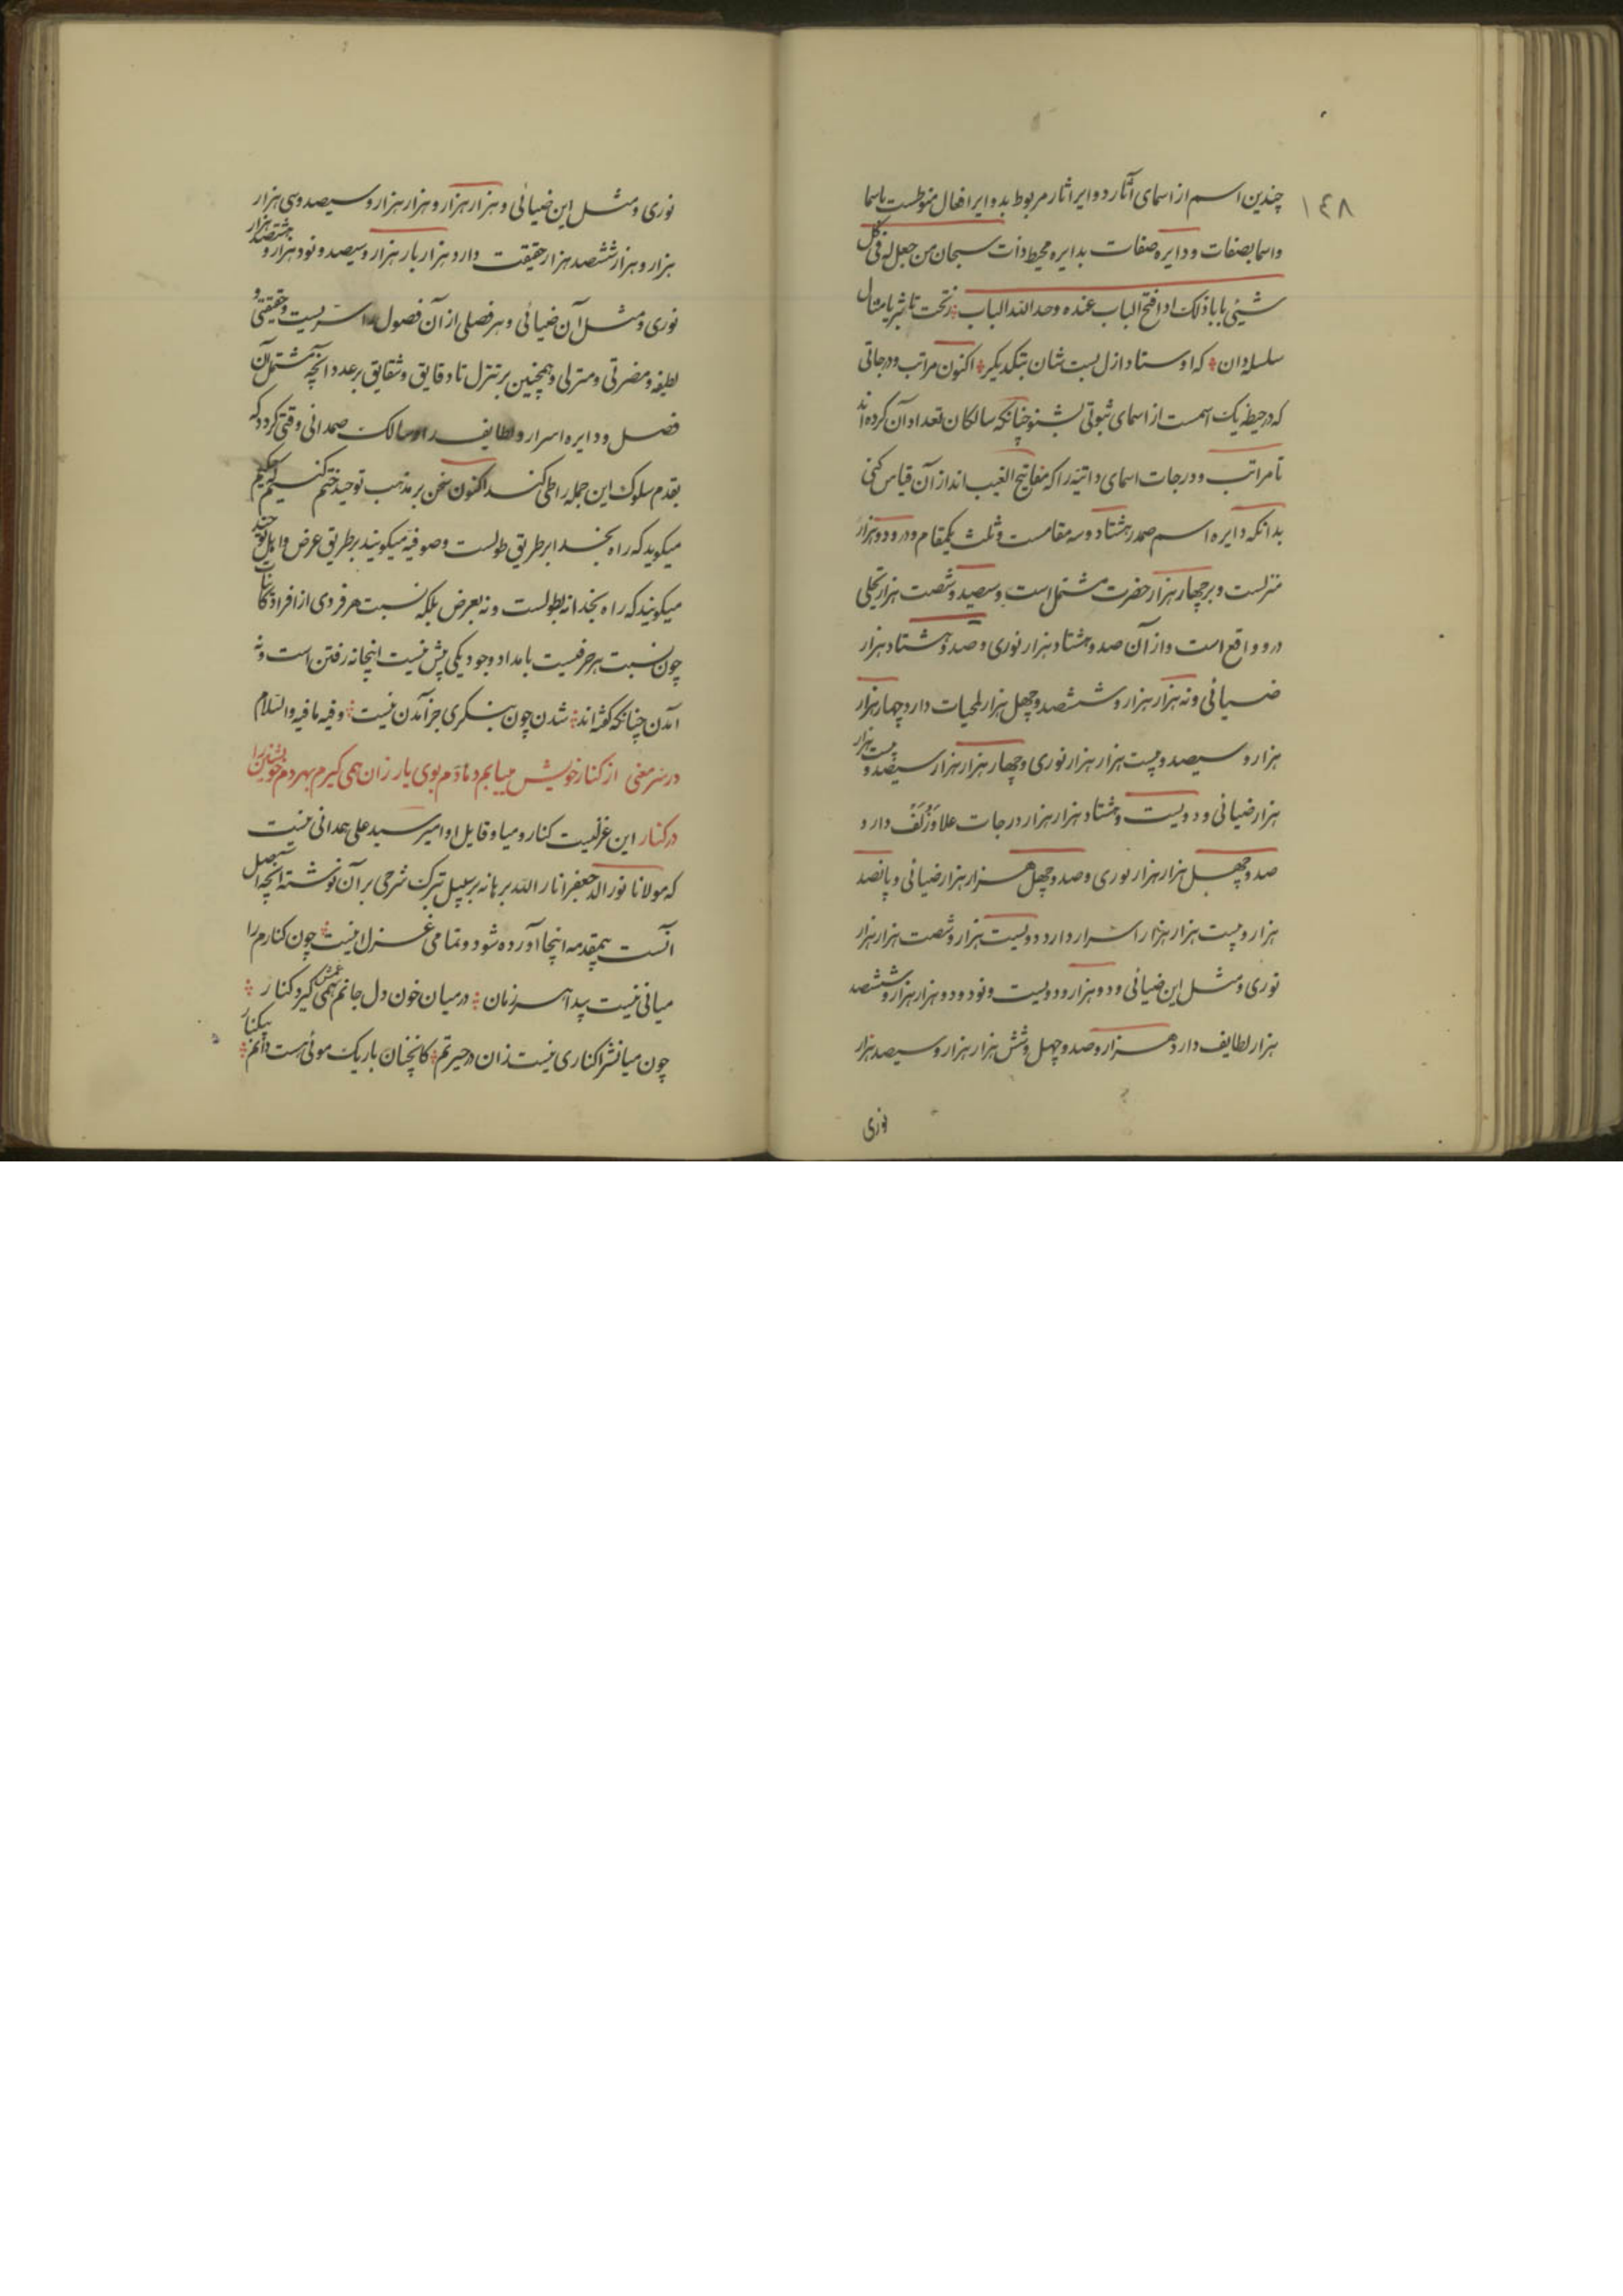 ١٤٨
چندین اسم از اسمای آثار دوایر اثار مربوط بدوایر افعال منوطست باسما
واسما بصفات و دایره صفات بدایره محیط ذات سبحان من جعل له فی کل
شیئی بابا ذلک اذا فتح الباب عنده وحد الله الباب زتحت تا ثریا مثال
سلسله دان که اوستاد ازل بست شان بیکدیکر اکنون مراتب ودرجاتی
که در حیطه یک اسمست از اسمای ثبوتی بشنو چنانکه سالکان تعداد آن کرده اند
تا مراتب ودرجات اسمای ذاتیه را که مفاتیح الغیب اند از آن قیاس کنی
بدانکه دایره اسم صمد رهشتاد وسه مقامست وثلث یکمقام ودر ودو هزار
منزلست و بر چهار هزار حضرت مشتمل است وسیصد وشصت هزار تجلی
درو واقع است واز آن صد وهشتاد هزار نوری وصد وهشتاد هزار
ضیائی ونه هزار هزار وششصد وچهل هزار لمحیات دارد چهار هزار
هزار و سیصد وبیست هزار هزار نوری وچهار هزار هزار سیصد و بیست هزار
هزار ضیائی ودویست وهشتاد هزار هزار درجات علا وزلف دارد
صد وچهل هزار هزار نوری وصد وچهل هزار هزار ضیائی وپانصد
هزار وبیست هزار هزار اسرار دارد دویست هزار وشصت هزار هزار
نوری ومثل این ضیائی ودو هزار ودویست ونود ودو هزار هزار وششصد
هزار لطایف دارد هزار وصد وچهل وشش هزار هزار وسیصد هزار
نوری
نوری ومثل این ضیائی وهزار هزار هزار وهزار هزار وسیصد وسی هزار
هزار وهزار ششصد هزار حقیقت دارد هزار بار هزار وسیصد ونود هزار و هشتصد هزار
نوری ومثل آن ضیائی وهر فصلی از آن فصول را سریست وحقیقتی و
لطیفه ومضرتی ومنزلی وهمچنین بر تنزل تا دقایق وشقایق بر عدد آنچه مشتمل آن
فصل ودایره اسرار ولطایف را و سالک صمدانی وقتی کردد که
بقدم سلوک این جمله را طی کند اکنون سخن بر مذهب توحید ختم کنیم حکیم
میکوید که راه بخدا بر طریق طولست وصوفیه میکویند بر طریق عرض واهل توحید
میکویند که راه بخدا نه بطولست ونه بعرض بلکه نسبت هر فردی از افراد کاینات
چون نسبت هر حرفیست با مداد وجود یکی بیش نیست اینجا نه رفتن است ونه
آمدن چنانکه کفته اند شدن چون بنکری جز آمدن نیست وفیه ما فیه والسلام
در سر معنی از کنار خویش میابم دمادم بوی یار زان همی کیرم بهر دم خویشتن را
در کنار این غزلیست کنار ومیا وقایل او امیر سید علی همدانی نیست
که مولانا نور الد جعفر انار الله برهانه بر سبیل تبرک شرحی بر آن نوشته آنچه اصل
آنست بیمقدمه اینجا آورده شود وتمامی غزل اینست چون کنارم را
میانی نیست پیدا هر زمان در میان خون دل جانم همی کیرد کنار
چون میانش را کناری نیست زان در حیرتم کانچنان باریک موئی هست دائم بیکنار